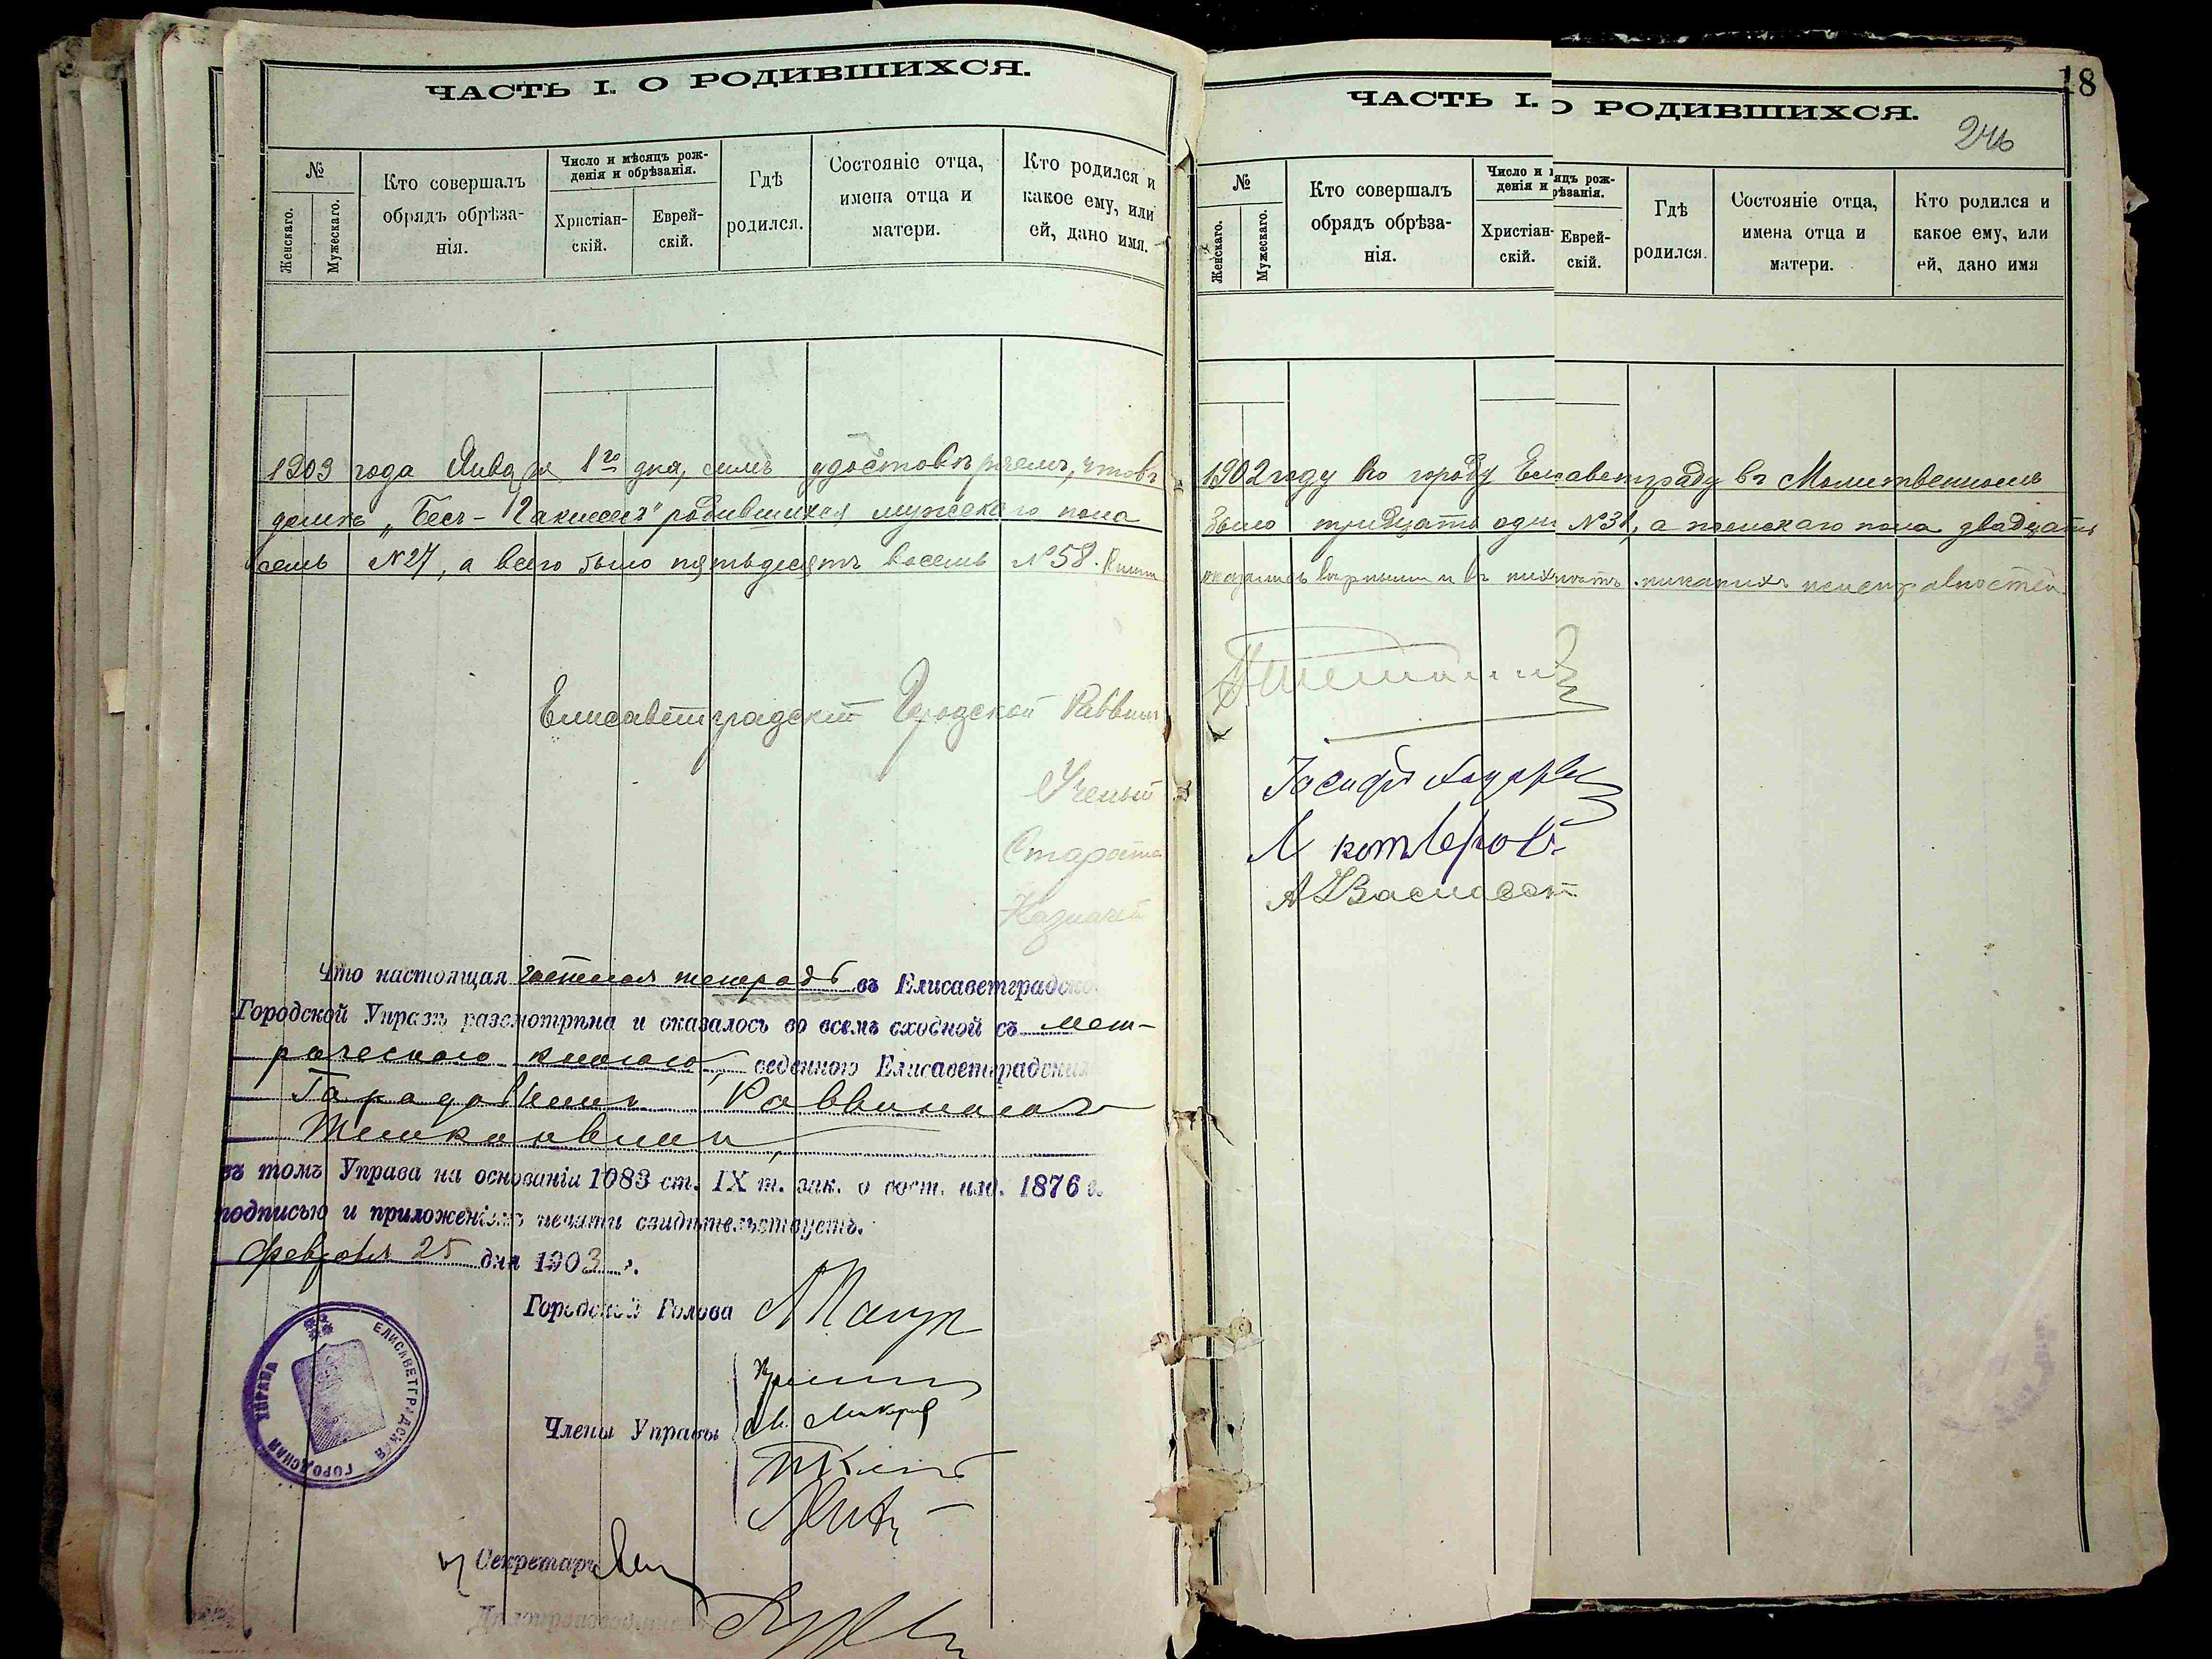 ЧАСТЬ I. О РОДИВШИХСЯ.
№
Женскаго.
Мужескаго.
Кто совершалъ
обрядъ обрѣза-
нія.
Число и мѣсяцъ рож-
денія и обрѣзанія.
Христіан-
скій.
Еврей-
скій.
Гдѣ
родился.
Состояніе отца,
имена отца и
матери.
Кто родился и
какое ему, или
ей, дано имя.
1903 года Января 1го дня, симъ удостовѣряемъ, что въ
домѣ „Бесъ- родившихся мужескаго пола
семь №27, а всего было пятьдесятъ восемь №58.
Елисаветградскій Городской Раввинъ
Ученый
Староста
Казначей
Что настоящая тетрадь въ Елисаветградско
Городской Управѣ разсмотрѣна и оказалось во всемъ сходной съ мет-
рическою книгою, веденною Елисаветградским
Раввиномъ
въ томъ Управа на основаніи 1083 ст. IX т. зак. о сост. изд. 1876 г.
подписью и приложеніемъ печати свидѣтельствуетъ.
Февраля 25 дня 1903 г.
Городской Голова
Члены Управы
Секретарь
ЕЛИСАВЕТГРАДСКАЯ ГОРОДСКАЯ УПРАВА
18
ЧАСТЬ I. О РОДИВШИХСЯ.
246
№
Женскаго.
Мужескаго.
Кто совершалъ
обрядъ обрѣза-
нія.
Число и
денія и
яцъ рож-
рѣзанія.
Христіан-
скій.
Еврей-
скій.
Гдѣ
родился.
Состояніе отца,
имена отца и
матери.
Кто родился и
какое ему, или
ей, дано имя
1902 году по городу Елисаветграду въ Молитвенномъ
было тридцать одинъ №31, а женскаго пола двадцать
оказались вѣрными и въ нихъ нѣтъ никакихъ неисправностей.